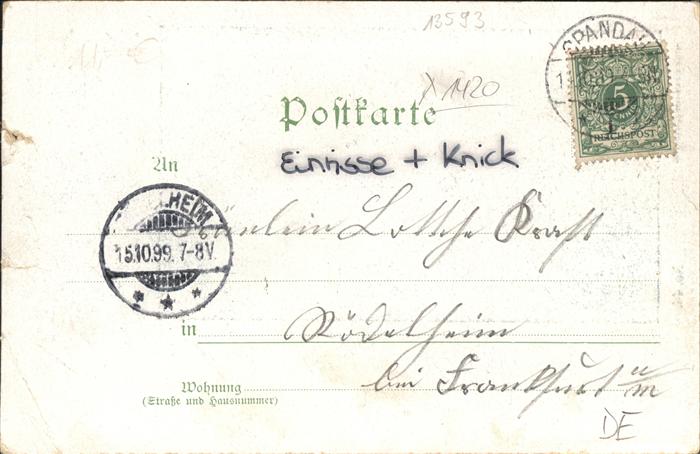 13593
SPANDAU
5
REICHSPOST
X 1420
Postkarte
Einrisse + Knick
An
Fräulein Lottche Kraft
15.10.99. 7-8V.
in Rödelheim
bei Frankfurt a/m
Wohnung
(Straße und Hausnummer)
DE